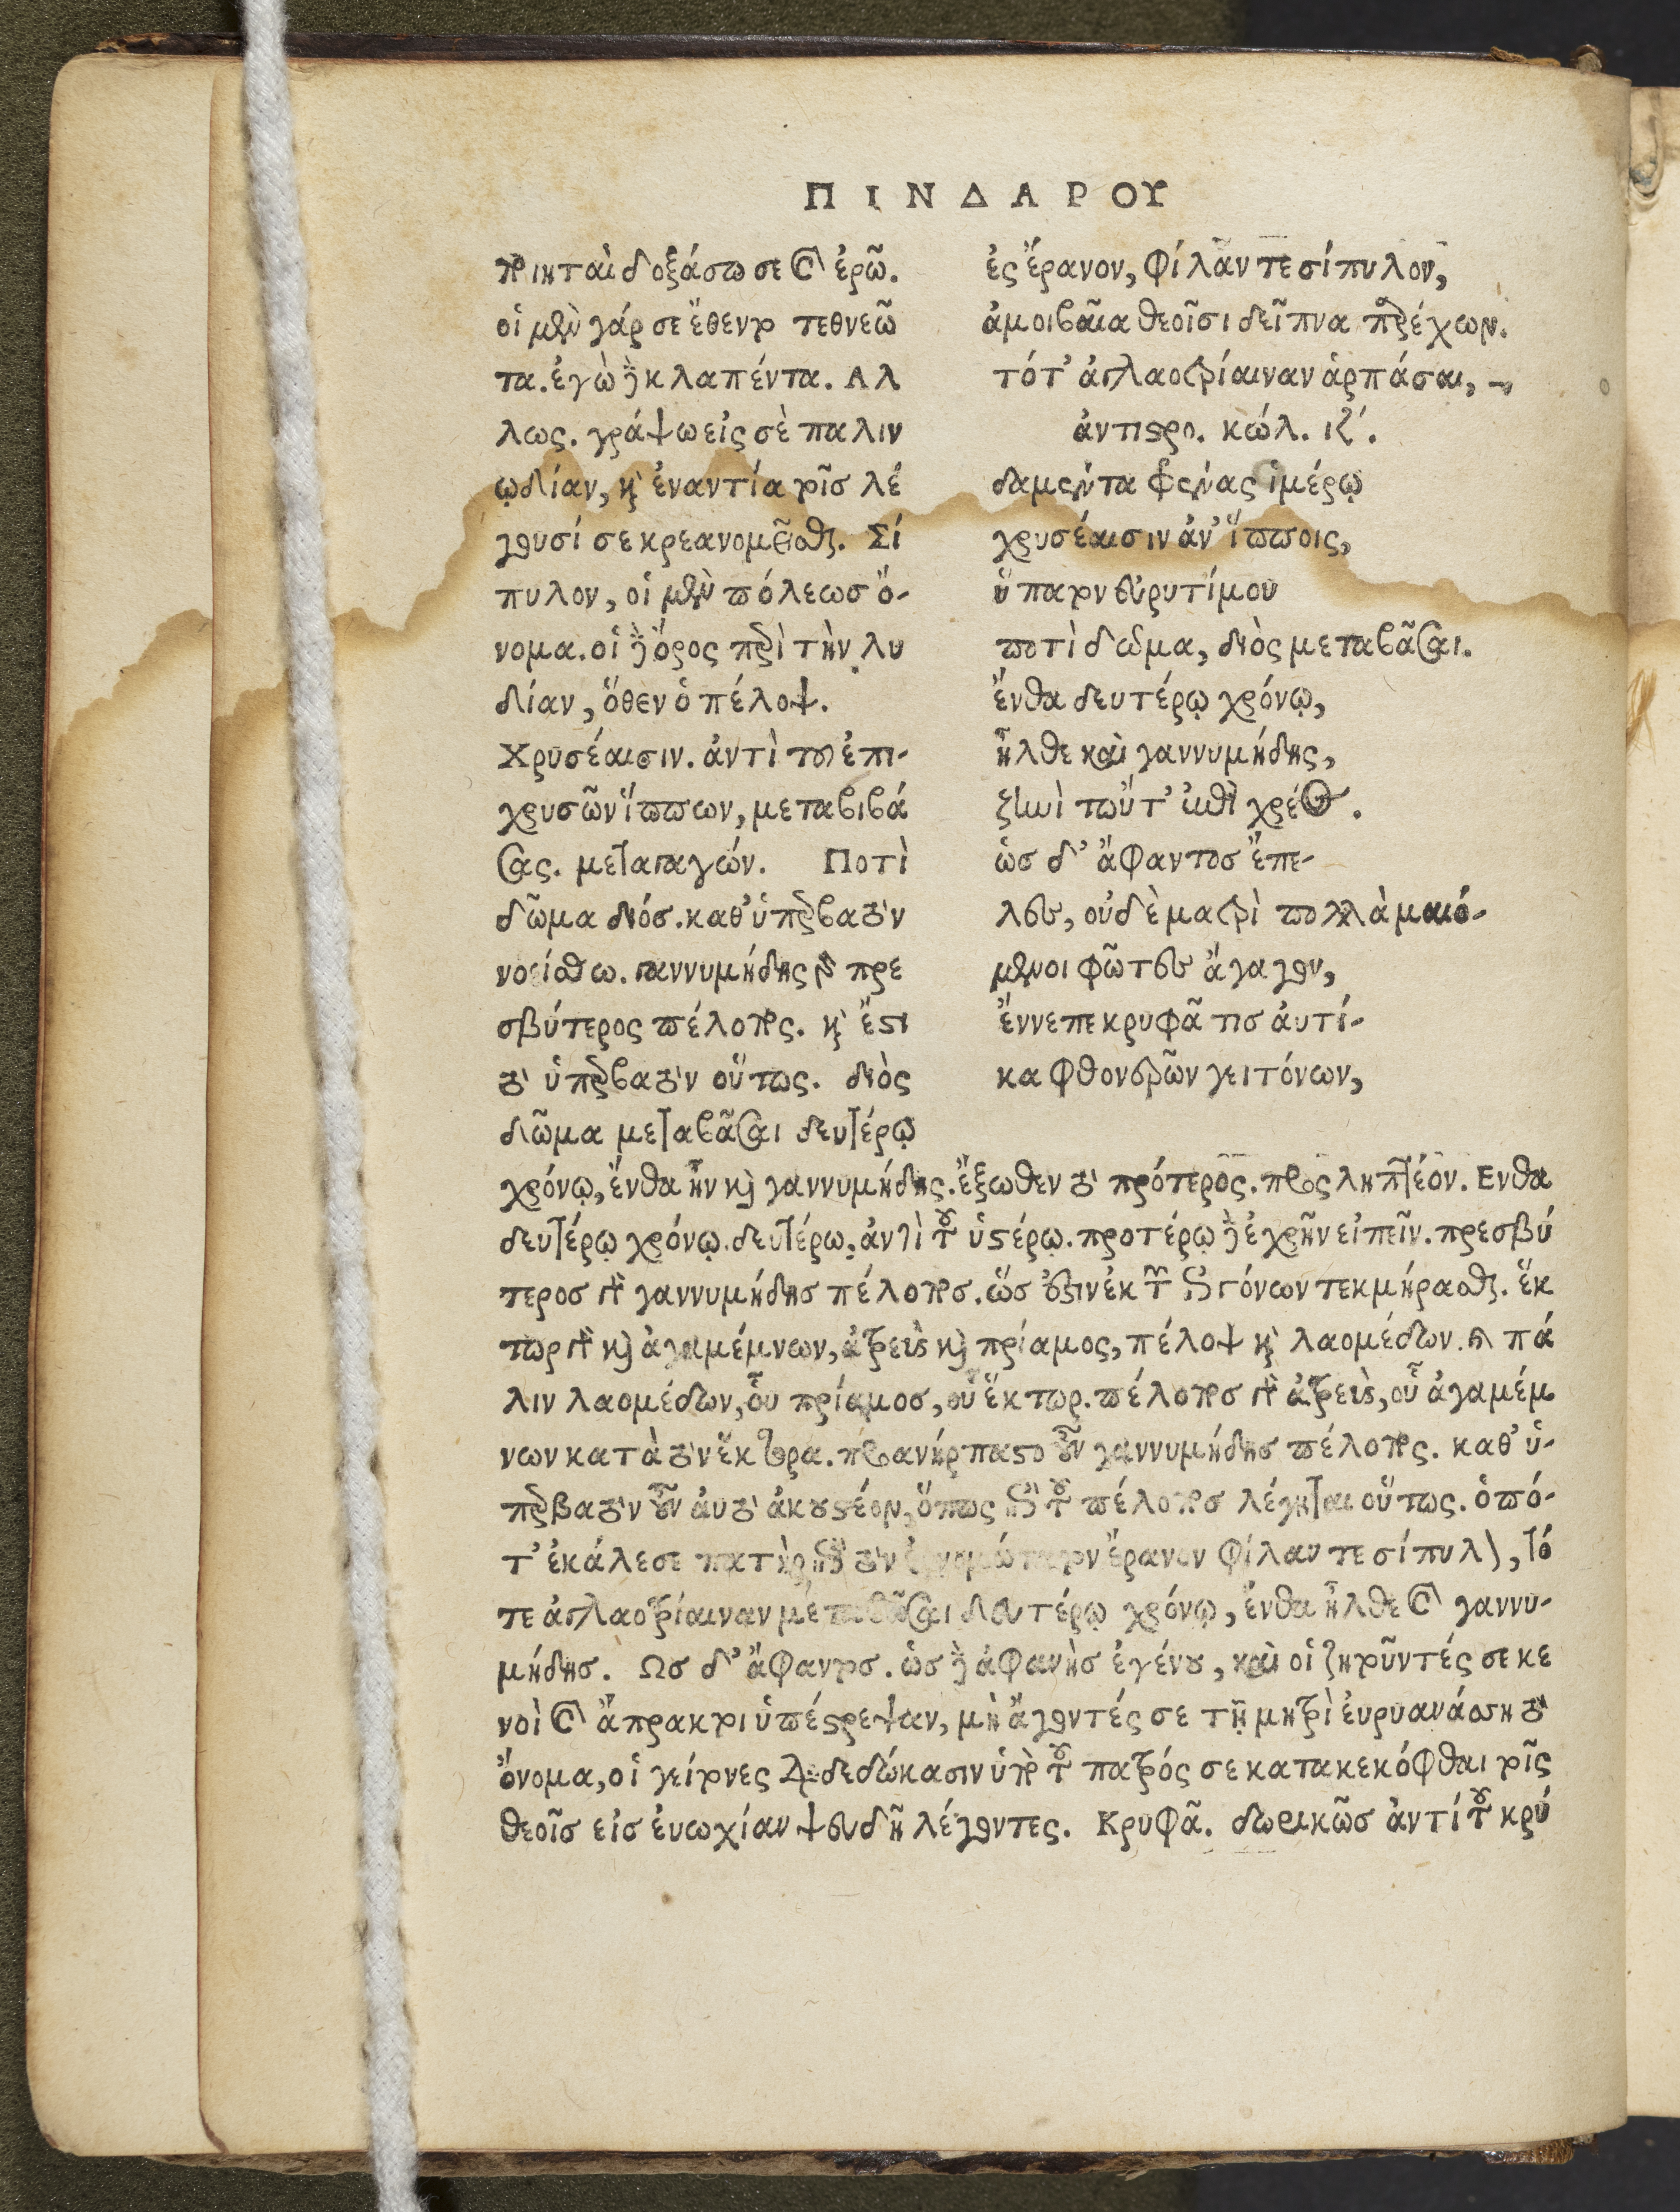 ΠΙΝΔΑΡΟΥ
ποιηταὶ δοξάσωσε καὶ ἐρῶ.
οἱ μὲν γάρ σε ἔθεντο τεθνεῶ
τα. ἐγὼ δὲ κλαπέντα. Αλ
λως. γράψω εἰς σὲ παλιν
ῳδίαν, καὶ ἐναντία τοῖσ λέ
γουσί σε κρεανομεῖσθαι. Σί
πυλον, οἱ μὲν πόλεωσ ὄ-
νομα. οἱ δὲ ὄρος περὶ τὴν λυ
δίαν, ὅθεν ὁ πέλοψ.
Χρυσέαισιν. ἀντὶ τοῦ ἐπι-
χρυσῶν ἵππων, μεταβιβά
σας. μεταγαγών. Ποτὶ
δῶμα διόσ. καθ' ὑπερβατὸν
νοείσθω. γαννυμήδης γὰρ πρε
σβύτερος πέλοπος. καὶ ἔστι
τὸ ὑπερβατὸν οὕτως. διὸς
δῶμα μεταβᾶσαι δευτέρῳ
ἐς ἔρανον, φίλαν τε σίπυλον,
ἀμοιβαῖα θεοῖσι δεῖπνα παρέχων.
τότ' ἀγλαοτρίαιναν ἁρπάσαι,
ἀντιστρο. κώλ. ιζ'.
δαμέντα φρένας ἱμέρῳ
χρυσέαισιν ἀν' ἵπποις,
ὕπατον εὐρυτίμου
ποτὶ δῶμα, διὸς μεταβᾶσαι.
ἔνθα δευτέρῳ χρόνῳ,
ἦλθε καὶ γαννυμήδης,
ζηνὶ τωὔτ' ἐπὶ χρέος.
ὡσ δ' ἄφαντοσ ἔπε-
λες, οὐδὲ ματρὶ πολλὰ μαιό-
μενοι φῶτες ἄγαγον,
ἔννεπε κρυφᾶ τισ ἀυτί-
κα φθονερῶν γειτόνων,
χρόνῳ, ἔνθα ἦν καὶ γαννυμήδης. ἔξωθεν τὸ πρότερος. προσληπτέον. Ενθα
δευτέρῳ χρόνῳ. δευτέρω, ἀντὶ τοῦ ὑστέρῳ. προτέρῳ δὲ ἐχρῆν εἰπεῖν. πρεσβύ
τεροσ γὰρ γαννυμήδησ πέλοποσ. ὥσ ἐστιν ἐκ τῶν ἐγγόνων τεκμήρασθαι. ἕκ
τωρ γὰρ καὶ ἀγαμέμνων, ἀτρεὺς καὶ πρίαμος, πέλοψ καὶ λαομέδων. καὶ πά
λιν λαομέδων, οὗ πρίαμοσ, οὗ ἕκτωρ. πέλοποσ γὰρ ἀτρεὺς, οὗ ἀγαμέμ
νων κατὰ τὸν ἕκτορα. προανήρπαστο οὖν γαννυμήδησ πέλοπος. καθ' ὑ-
περβατὸν οὖν ἀυτὸ ἀκουστέον, ὅπως ἐπὶ τοῦ πέλοποσ λέγηται οὕτως. ὁπό-
τ' ἐκάλεσε πατὴρ ἐπὶ τὸν ἔρανον φίλαν τε σίπυλον, τό
τε ἀγλαοτρίαιναν μεταβᾶσαι δευτέρῳ χρόνῳ, ἔνθα ἦλθε καὶ γαννυ-
μήδησ. Ωσ δ' ἄφαντοσ. ὡσ δὲ ἀφανὴσ ἐγένου, καὶ οἱ ζητοῦντές σε κε
νοὶ καὶ ἄπρακτοι ὑπέστρεψαν, μὴ ἄγοντές σε τῇ μητρὶ ἐυρυανάσσῃ τὸ
ὄνομα, οἱ γείτονες διαδεδώκασιν ὑπὸ τοῦ πατρός σε κατακεκόφθαι τοῖς
θεοῖσ εἰσ ἐυωχίαν ψευδῆ λέγοντες. Κρυφᾶ. δωρικῶσ ἀντί τοῦ κρύ